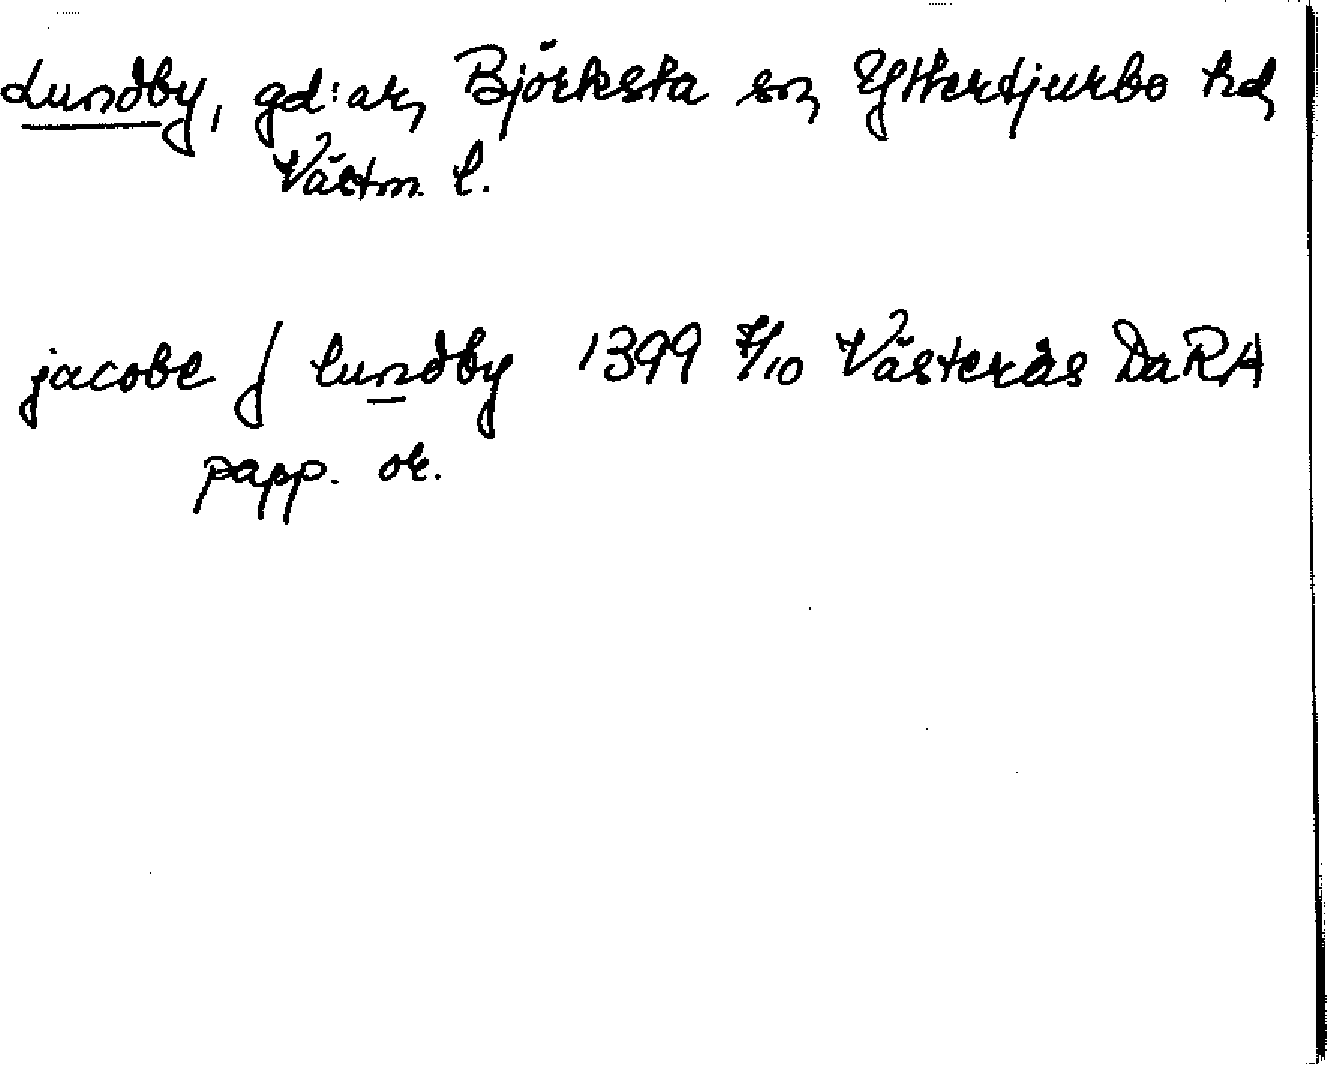 Lundby, gd:ar, Björksta sn, Yttertjurbo hd,
Västm. l.
jacobe j lundby 1399 7/10 Västerås DaRA
papp. or.